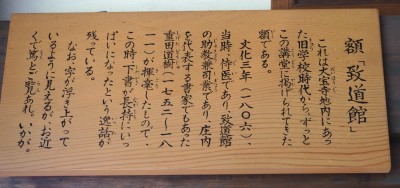 額「致道館」
これは大宝寺地内にあっ
た旧学校時代から、ずっと
この講堂に掲げられてきた
額である。
文化三年(一八〇六)、
当時、侍医であり、致道館
の助教兼司業であり、庄内
を代表する書家でもあった
重田道樹(一七五二~一八
一一)が揮毫したもので、
この時、下書が長持にいっ
ぱいになったという逸話が
残っている。
なお、字が浮き上がって
いるように見えるが、お近
くで篤とご覧あれ。いかが。